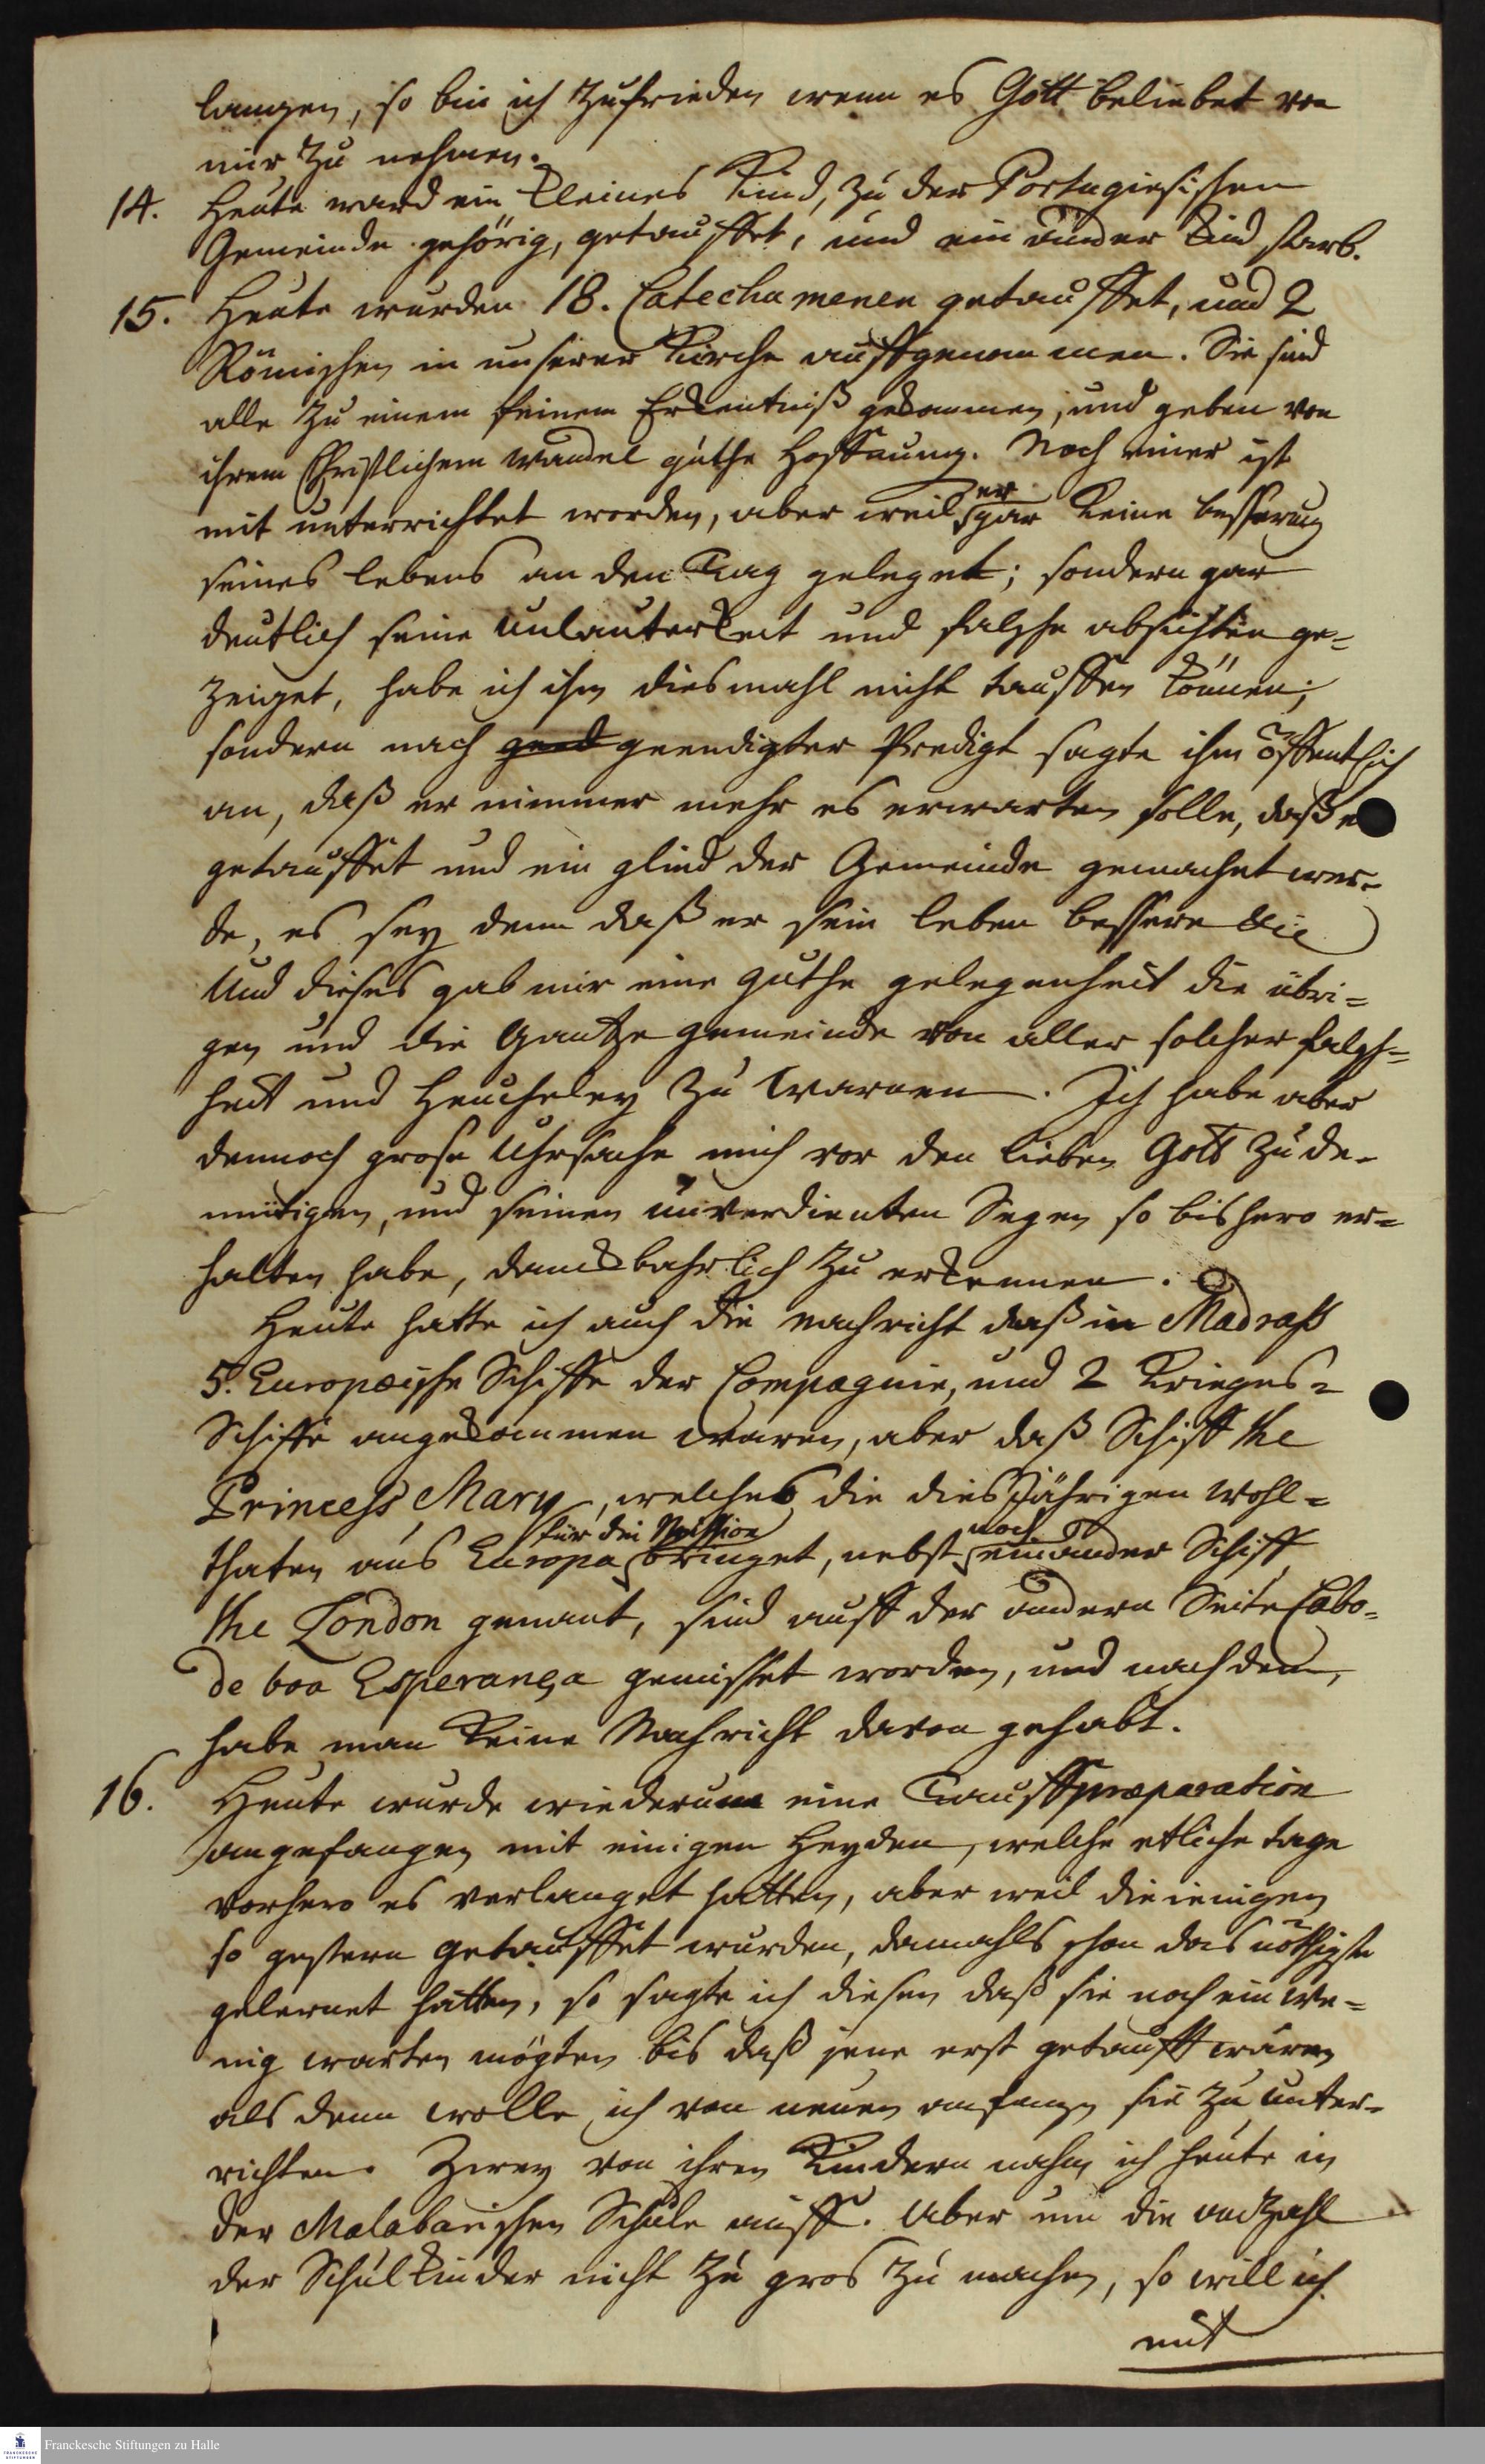 langen, so bin ich zufrieden wenn es Gott beliebet von
mir zu nehmen.
14. Heute ward ein kleines Kind, zu der Portugiesischen
Gemeinde gehörig, getauffet, und ein ander Kind starb.
15. Heute wurden 18. Catechumenen getauffet, und 2
Römischen in unserer Kirche auffgenommen. Sie sind
alle zu einem feinem Erkentniß gekommen, und geben von
ihrem Christlichem Wandel guthe Hoffnung. Noch einer ist
mit unterrichtet worden, aber weil er gar keine besserung
seines lebens an den Tag geleget; sondern gar
deutlich seine unlauterkeit und falsche absichten ge=
zeiget, habe ich ihn diesmahl nicht tauffen können;
sondern nach geendigter Predigt sagte ihm öffentlich
an, daß er nimmer mehr es erwarten solle, daß er
getauffet und ein glied der Gemeinde gemachet wer=
de, es sey denn daß er sein leben bessere
Und dieses gab mir eine guthe gelegenheit die übri=
gen und die gantze gemeinde von aller solcher falsch=
heit und Heucheley zu warnen. Ich habe aber
dennoch grose Uhrsache mich vor den lieben Gott zu de=
mütigen, und seinen unverdienten Segen so bishero er=
halten habe, danckbahrlich zu erkennen.
Heute hatte ich auch die nachricht daß in Madrass
5. Europæische Schiffe der Compagnie, und 2 Krieges=
Schiffe angekommen waren, aber daß Schiff the
Princess Mary, welches die diesjährigen Wohl=
thaten aus Europa für die Mission bringet, nebst noch ein ander Schiff
the London genant, sind auff der andern Seite Cabo=
de boa Esperança gemisset worden, und nach dem,
habe man keine Nachricht davon gehabt.
16. Heute wurde wiederum eine Tauffpræparation
angefangen mit einigen Heyden, welche etliche tage
vorhero es verlanget hatten, aber weil die ienigen
so gestern getauffet wurden, damahls schon das nöthigste
gelernet hatten, so sagte ich diesen daß sie noch ein we=
nig warten mögten bis daß jene erst getaufft wären
als denn wolle ich von neuen anfangen sie zu unter=
richten. Zwey von ihren Kindern nahm ich heute in
der Malabarischen Schule auff. Aber um die anzahl
der Schulkinder nicht zu gros zu machen, so will ich
mit
Franckesche Stiftungen zu Halle